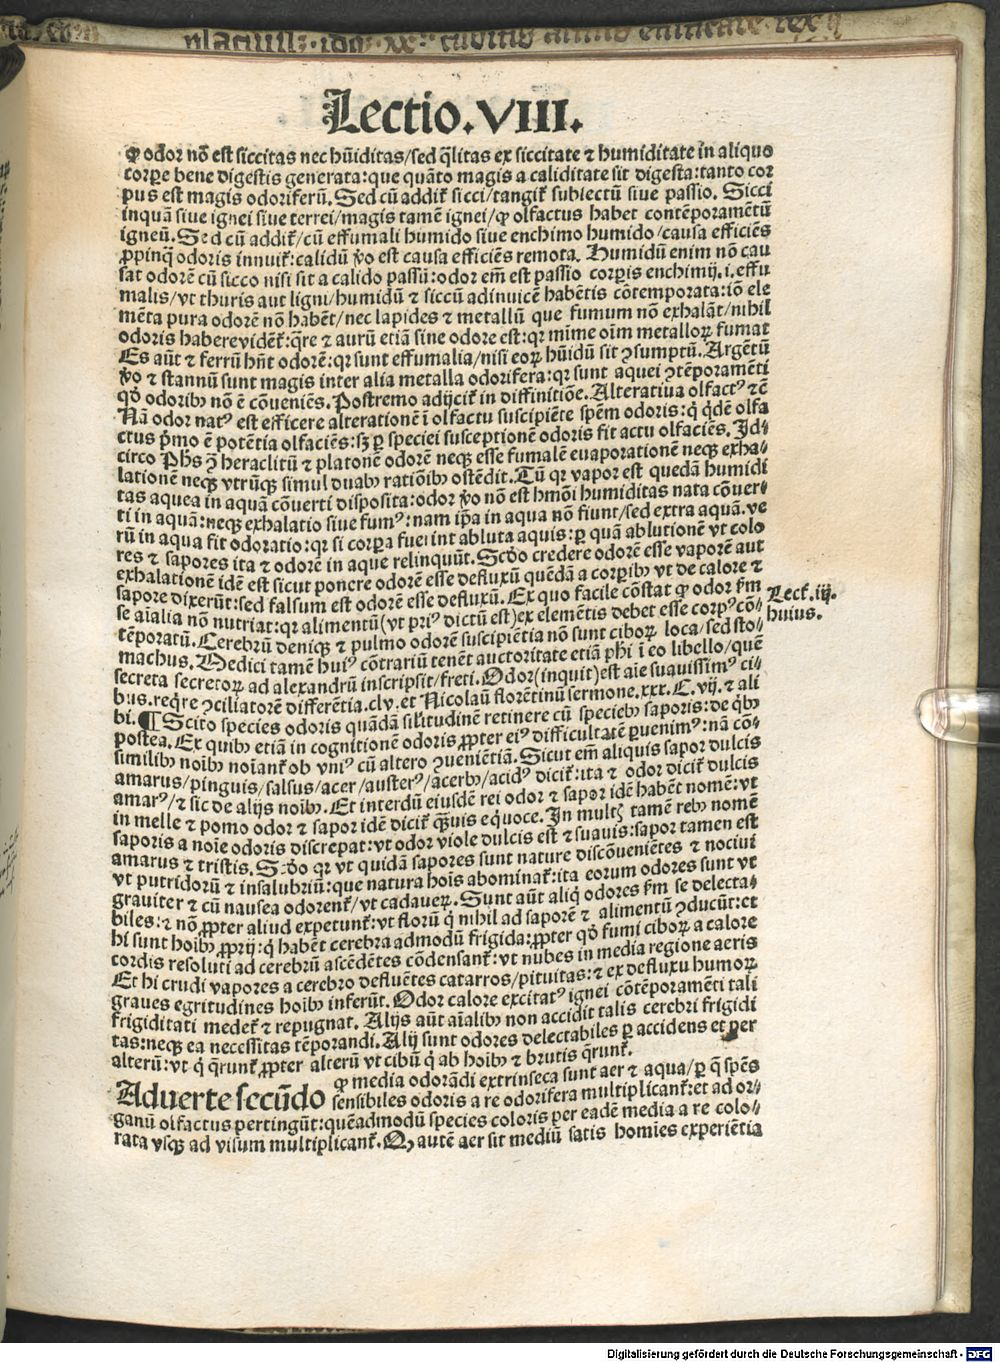 Lectio.VIII.
ꝙ odor nō est siccitas nec hūiditas/sed q̄litas ex siccitate ⁊ humiditate in aliquo
corꝑe bene digestis generata:que quāto magis a caliditate sit digesta:tanto cor
pus est magis odoriferū.Sed cū addit̄ sicci/tangit̄ subiectū siue passio. Sicci
inquā siue ignei siue terrei/magis tamē ignei/ꝙ olfactus habet contēporamētū
igneū.Sed cū addit̄/cū effumali humido siue enchimo humido/causa efficiēs
ꝓpinq̄ odoris innuit̄:calidū ṽo est causa efficiēs remota. Humidū enim nō cau
sat odorē cū sicco nisi sit a calido passū:odor em̄ est passio corꝑis enchimij.i.effu
malis/vt thuris aut ligni/humidū ⁊ siccū adinuicē habētis cōtemporata:iō ele
mēta pura odorē nō habēt/nec lapides ⁊ metallū que fumum nō exhalāt/nihil
odoris haberevidēt̄:q̄re ⁊ aurū etiā sine odore est:qr mīme oīm metalloꝝ fumat
Es aūt ⁊ ferrū hn̄t odorē:qr sunt effumalia/nisi eoꝝ hūidū sit ꝯsumptū.Argētū
ṽo ⁊ stannū sunt magis inter alia metalla odorifera:qr sunt aquei ꝯtēporamēti
qď odoribꝰ nō ē cōueniēs.Postremo adijcit̄ in diffinitiōe.Alteratiua olfactꝰ ⁊cē
Nā odor natꝰ est efficere alterationē ī olfactu suscipiēte spēm odoris:q̇ q̇dē olfa
ctus pͥmo ē potētia olfaciēs:sꝫ ꝑ speciei susceptionē odoris fit actu olfaciēs.Id-
circo Ph̄s ꝯ̄ heraclitū ⁊ platonē odorē neqꝫ esse fumalē euaporationē neqꝫ exha-
lationē neqꝫ vtrūqꝫ simul duabꝰ ratiōibꝰ ostēdit.Tū qr vapor est quedā humidi
tas aquea in aquā cōuerti disposita:odor ṽo nō est hmōi humiditas nata cōuer-
ti in aquā:neqꝫ exhalatio siue fumꝰ:nam ip̄a in aqua nō fiunt/sed extra aquā.ve
rū in aqua fit odoratio:qr si corꝑa fuerint abluta aquis:ꝑ quā ablutionē vt colo
res ⁊ sapores ita ⁊ odorē in aque relinquūt.Scďo credere odorē esse vaporē aut
exhalationē idē est sicut ponere odorē esse defluxū quēdā a corꝑibꝰ vt de calore ⁊
sapore dixerūt:sed falsum est odorē esse defluxū.Ex quo facile cōstat ꝙ odor ẜm
se aīalia nō nutriat:qr alimentū(vt priꝰ dictū est)ex elemētis debet esse corpꝰ cō-
tēporatū.Cerebrū deniqꝫ ⁊ pulmo odorē suscipiētia nō sunt ciboꝝ loca/sed sto-
machus.Medici tamē huiꝰ cōtrariū tenēt auctoritate etiā phi ī eo libello/quē
secreta secretoꝝ ad alexandrū inscripsit/freti.Odor(inquit)est aīe suauissimꝰ ci-
bus.reqͥre ꝯciliatorē differētia.clv.et Nicolaū florētinū sermone.xxx.C.vij.⁊ ali
bi.¶Scito species odoris quādā sil̄itudinē retinere cū speciebꝰ saporis:de q̇bꝰ
postea.Ex quibꝰ etiā in cognitionē odoris ꝓpter eiꝰ difficultatē ꝑuenimꝰ:nā cō-
similibꝰ noībꝰ noīant̄ ob vniꝰ cū altero ꝯueniētiā.Sicut em̄ aliquis sapor dulcis
amarus/pinguis/salsus/acer/austerꝰ/acerbꝰ/acidꝰ dicit̄:ita ⁊ odor dicit̄ dulcis
amarꝰ/⁊ sic de alijs noībꝰ.Et interdū eiusdē rei odor ⁊ sapor idē habēt nomē:vt
in melle ⁊ pomo odor ⁊ sapor idē dicit̄ q̄ȝuis equoce.In multꝭ tamē rebꝰ nomē
saporis a noīe odoris discrepat:vt odor viole dulcis est ⁊ suauis:sapor tamen est
amarus ⁊ tristis.Scďo qr vt quidā sapores sunt nature discōueniētes ⁊ nociui
vt putridorū ⁊ insalubriū:que natura hoīs abominat̄:ita eorum odores sunt vt
grauiter ⁊ cū nausea odorent̄/vt cadaueꝝ.Sunt aūt aliq̇ odores ẜm se delecta-
biles:⁊ nō ꝓpter aliud expetunt̄:vt florū q̇ nihil ad saporē ⁊ alimentū ꝯducūt:et
hi sunt hoībꝰ ꝓprij:q̇ habēt cerebra admodū frigida:ꝓpter qď fumi ciboꝝ a calore
cordis resoluti ad cerebrū ascēdētes cōdensant̄:vt nubes in media regione aeris
Et hi crudi vapores a cerebro defluētes catarros/pituitas:⁊ ex defluxu humoꝝ
graues egritudines hoībꝰ inferūt.Odor calore excitatꝰ ignei cōtēporamēti tali
frigiditati medet̄ ⁊ repugnat. Alijs aūt aīalibꝰ non accidit talis cerebri frigidi
tas:neqꝫ ea necessitas tēporandi.Alij sunt odores delectabiles ꝑ accidens et per
alterū:vt q̇ q̄runt̄ ꝓpter alterū vt cibū q̇ ab hoībꝰ ⁊ brutis q̄runt̄.
Aduerte secūdo ꝙ media odorādi extrinseca sunt aer ⁊ aqua/ꝑ q̄ sp̄es
sensibiles odoris a re odorifera multiplicant̄:et ad or-
ganū olfactus pertingūt:quēadmodū species coloris per eadē media a re colo-
rata vsqꝫ ad visum multiplicant̄.Qꝫ autē aer sit mediū satis homīes experiētia
Lect̄.iij.
huius.
Digitalisierung gefördert durch die Deutsche Forschungsgemeinschaft - DFG